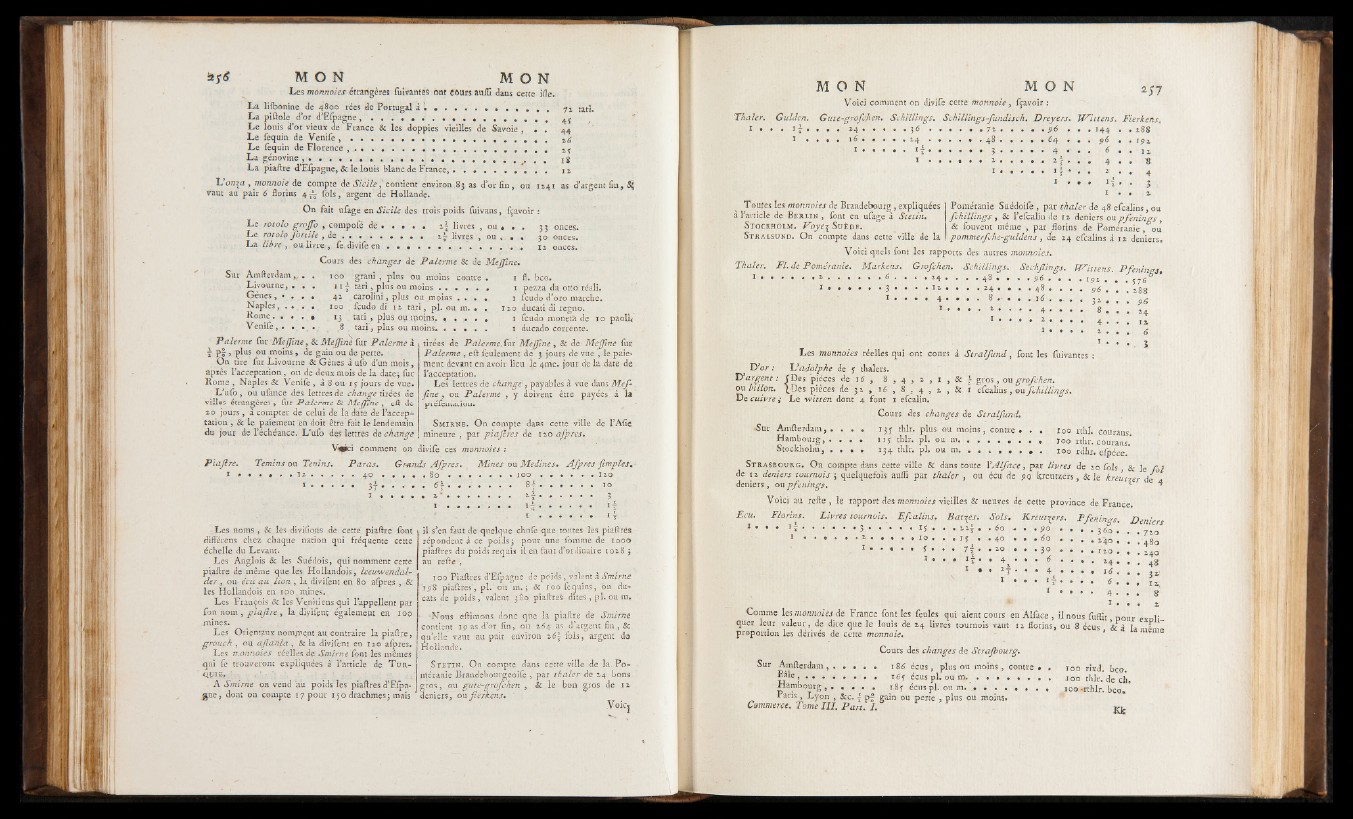 256 MON MON
Les monnoies étrangères suivantes ont cours aussi dans cette isle.
La lisbonine de 4800 rées de Portugal à . . . . . . . . . . . . . 72 tari.
La pistole d'or d'Espagne, . . . . . . . . . . . . . . . . . 45
Le louis d'or vieux de France & les doppies vieilles de Savoie, . . 44
Le sequin de Venise, . . . . . . . . . . . . . . . . . . . 26
Le sequin de Florence, . . . . . . . . . . . . . . . . . . 25
La génovine, . . . . . . . . . . . . . . . . . . . . . . 18
La piastre d'Espagne, & le louis blanc de France, . . . . . . . . . 12
L'onza, monnoie de compte de Sicile, contient environ 83 as d'or fin, ou 1241 as d'argent fin, &
vaut au pair 6 florins 4 1/10 sols, argent de Hollande.
On fait usage en Sicile des trois poids suivans, sçavoir :
Le rotolo grosso, composé de . . . . . 2 3/4 livres, ou . . . 33 onces.
Le rotolo sottile, de . . . . . . . . . 2 1/2 livres, ou . . . 30 onces.
La libre, ou livre, se divise en . . . . . . . . . . . . . . 12 onces.
Cours des changes de Palerme & de Messine.
Sur Amsterdam, . . 100 grani, plus ou moins contre . 1 fl. bco.
Livourne, . . . 11 1/2 tari, plus ou moins . . . . . . 1 pezza da otto réali.
Génes, . . . . 42 carolini, plus ou moins . . . . 1 scudo d'oro marche.
Naples, . . . . 100 scudo di 12 tari, pl. ou m. . . 120 ducati di regno.
Rome . . . . . 13 tari, plus ou moins, . . . . . . 1 scudo moneta de 10 paoli.
Venise, . . . . 8 tari, plus ou moins. . . . . . 1 ducado corrente.
Palerme sur Messine, & Messine sur Palerme à
1/2 p% plus ou moins, de gain ou de perte.
On tire sur Livourne & Génes à uso d'un mois,
après l'acceptation, ou de deux mois de la date; sur
Rome, Naples & Venise, à 8 ou 15 jours de vue.
L'uso, ou usance des lettres de change tirées de
villes étrangères, sur Palerme & Messine, est de
20 jours, à compter de celui de la date de l'accep-
tation, & le paiement en doit être fait le lendemain
du jour de l'échéance. L'uso des lettres de change
tirées de Palerme sur Messine, & de Messine sur
Palerme, est seulement de 3 jours de vue, le paie-
ment devant en avoir lieu le 4me. jour de la date de
l'acceptation.
Les lettres de change, payables à vue dans Mes-
sine, ou Palerme, y doivent être payées à la
présentation.
SMIRNE. On compte dans cette ville de l'Asie
mineure, par piastres de 120 aspres.
Voici comment on divise ces monnoies :
Piastre. Temins ou Tenins. Paras. Grands Aspres. Mines ou Medines. Aspres simples.
1 . . . . . . 12 . . . . . . 40 . . . . . . 80 . . . . . . 100 . . . . . . 120
1 . . . . . 3 1/3 . . . . . 6 2/3 . . . . . . 8 1/3 . . . . . . 10
1 . . . . . 2 . . . . . . 2 1/2 . . . . . . 3
1 . . . . . . 1 1/4 . . . . . . 1 1/2
1 . . . . . . 1 1/5
Les noms, & les divisions de cette piastre sont
différens chez chaque nation qui fréquente cette
échelle du Levant.
Les Anglois & les Suédois, qui nomment cette
piastre de même que les Hollandois, leeuwendal-
der, ou écu au lion, la divisent en 80 aspres, &
les Hollandois en 100 mines.
Les François & les Venitiens qui l'appellent par
son nom, piastre, la divisent également en 100
mines.
Les Orientaux nomment au contraire la piastre,
grouch, ou astanla, & la divisent en 120 aspres.
Les monnoies réelles de Smirne sont les mêmes
qui se trouveront expliquées à l'article de TUR-
QUIE.
A Smirne on vend au poids les piastres d'Espa-
gne, dont on compte 17 pour 150 drachmes; mais
il s'en faut de quelque chose que toutes les piastres
répondent à ce poids; pour une somme de 1000
piastres du poids requis il en faut d'ordinaire 1028 ;
au reste,
100 Piastres d'Espagne de poids, valent à Smirne
198 piastres, pl. ou m.; & 100 sequins, ou du-
cats de poids, valent 380 piastres dites, pl. ou m.
Nous estimons donc que la piastre de Smirne
contient 19 as d'or fin, ou 264 as d'argent fin, &
qu'elle vaut au pair environ 26 1/2 sols, argent de
Hollande.
STETIN. On compte dans cette ville de la Po-
méranie Brandebourgeoise, par thaler de 24 bons
gros, ou gute-groschen, & le bon gros de 12
deniers, ou fierkens.
Voici
MON MON 257
Voici comment on divise cette monnoie, sçavoir :
Thaler. Gulden. Gute-groschen. Schillings. Schillings-sundisch. Dreyers. Wittens. Fierkens.
1 . . . 1 1/2 . . . . 24 . . . . . 36 . . . . . . 72 . . . . . 96 . . . 144 . . 288
1 . . . . 16 . . . . . 24 . . . . . . 48 . . . . . 64 . . . 96 . . 192
1 . . . . . 1 1/2 . . . . . . 3 . . . . . 4 . . . 6 . . 12
1 . . . . . . 2 . . . . . 2 2/3 . . . 4 . . 8
1 . . . . . 1 1/3 . . . 2 . . 4
1 . . . 1 1/2 . . 3
1 . . 2
Toutes les monnoies de Brandebourg, expliquées
à l'article de BERLIN, sont en usage à Stetin.
STOCKHOLM. Voyez SUÈDE.
STRALSUND. On compte dans cette ville de la
Pométanie Suédoise, par thaler de 48 escalins, ou
schillings, & l'escalin de 12 deniers ou pfenings,
& souvent même, par florins de Poméranie, ou
pommersche-guldens, de 24 escalins à 12 deniers.
Voici quels sont les rapports des autres monnoies.
Thaler. Fl. de Poméranie. Markens. Groschen. Schillings. Sechslings. Wittens. Pfenings.
1 . . . . . . 2 . . . . . . 6 . . . . 24 . . . . 48 . . . . 96 . . . . 192 . . . 576
1 . . . . . . 3 . . . . 12 . . . . 24 . . . . 48 . . . . 96 . . . 288
1 . . . . 4 . . . . 8 . . . . 16 . . . . 32 . . . 96
1 . . . . 2 . . . . 4 . . . . 8 . . . 24
1 . . . . 2 . . . . 4 . . . 12
1 . . . . 2 . . . 6
1 . . . 3
Les monnoies réelles qui ont cours à Stralsund, sont les suivantes :
D'or : L'Adolphe de 5 thalers.
D'argent : Des pièces de 16, 8, 4, 2, 1, & 1/2 gros, ou groschen.
ou billon. Des pièces de 32, 16, 8, 4, 2, & 1 escalins, ou schillings.
De cuivre; Le witten dont 4 font 1 escalin.
Cours des changes de Stralsund.
Sur Amsterdam, . . . . 135 thlr. plus ou moins, contre . . . 100 rthl. courans.
Hambourg, . . . . 115 thlr. pl. ou m. . . . . . . . . 100 rthr. courans.
Stockholm, . . . . 134 thlr. pl. ou m. . . . . . . . . 100 rdhs. espèce.
STRASBOURG. On compte dans cette ville & dans toute l'Alsace, par livres de 20 sols, & le sol
de 12 deniers tournois ; quelquefois aussi par thaler, ou écu de 90 kreutzers, & le kreutzer de 4
deniers, ou pfenings.
Voici au reste, le rapport des monnoies vieilles & neuves de cette province de France.
Ecu. Florins. Livres tournois. Escalins. Batzes. Sols. Kreutzers. Pfenings. Deniers
1 . . . 1 1/2 . . . . . . 3 . . . . . 15 . . . 22 1/2 . . 60 . . . 90 . . . . 360 . . . 720
1 . . . . . . 2 . . . . . 10 . . . 15 . . 40 . . . 60 . . . . 240 . . . 480
1 . . . . . 5 . . . 7 1/2 . . 20 . . . 30 . . . . 120 . . . 240
1 . . . 1 1/2 . . 4 . . . 6 . . . . 24 . . . 48
1 . . 2 2/3 . . . 4 . . . . 16 . . . 32
1 . . . 1 1/2 . . . . 6 . . . 12
1 . . . . 4 . . . 8
1 . . . 2
Comme les monnoies de France sont les seules qui aient cours en Alsace, il nous suffit, pour expli-
quer leur valeur, de dire que le louis de 24 livres tournois vaut 12 florins, ou 8 écus, & à la même
proportion les dérivés de cette monnoie.
Cours des changes de Strasbourg.
Sur Amsterdam, . . . . . 186 écus, plus ou moins, contre . . 100 rixd. bco.
Bâle, . . . . . . . . 165 écus pl. ou m. . . . . . . . . 100 thlr. de ch.
Hambourg, . . . . . 185 écus pl. ou m. . . . . . . . . 100 rthlr. bco.
Paris, Lyon, &c. 1/2 p% gain ou perte, plus ou moins.
Commerce. Tome III. Part. I. Kk